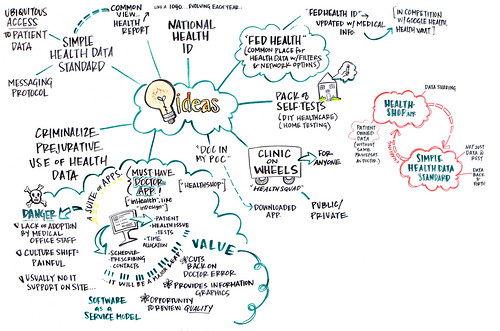 UBIQUITOUS
ACCESS
TO PATIENT
DATA
MESSAGING
PROTOCOL
SIMPLE
HEALTH DATA
STANDARD
COMMON
VIEW
HEALTH
REPORT
LIKE A 1040... EVOLVING EACH YEAR...
NATIONAL
HEALTH
ID
ideas
"FED HEALTH"
(COMMON PLACE for
HEALTH DATA w/FILTERS
& NETWORK OPTIONS)
"FEDHEALTH ID"
UPDATED w/MEDICAL
INFO
[IN COMPETITION
w/GOOGLE HEALTH,
HEALTH VAULT]
PACK of
SELF-TESTS
(DIY HEALTHCARE)
(HOME TESTING)
CRIMINALIZE
PREJURATIVE
USE OF HEALTH
DATA
"DOC IN
MY POC"
DOWNLOADED
APP.
CLINIC
ON
WHEELS
"HEALTH SQUAD"
FOR
ANYONE
PUBLIC/
PRIVATE
A SUITE of APPS.
MUST-HAVE
DOCTOR
APP!
["HEALTHSHOP"]
•PATIENT
•HEALTH ISSUE
•TESTS
•TIME
ALLOCATION
•SCHEDULE
•PRESCRIBING
•CONTACTS
IT WILL BE A MAJOR LEAP!
DANGER
LACK of ADOPTION
BY MEDICAL
OFFICE STAFF
CULTURE SHIFT-
PAINFUL
USUALLY NO IT
SUPPORT ON SITE...
VALUE
CUTS
BACK ON
DOCTOR ERROR
PROVIDES INFORMATION
GRAPHICS
OPPORTUNITY
TO REVIEW QUALITY
SOFTWARE
AS A
SERVICE MODEL
HEALTH-
SHOP APP.
DATA SHARING
PATIENT
OWNED
DATA
SIMPLE
HEALTH DATA
STANDARD
NOT JUST
DATA @
REST
DATA
BACK
and
FORTH